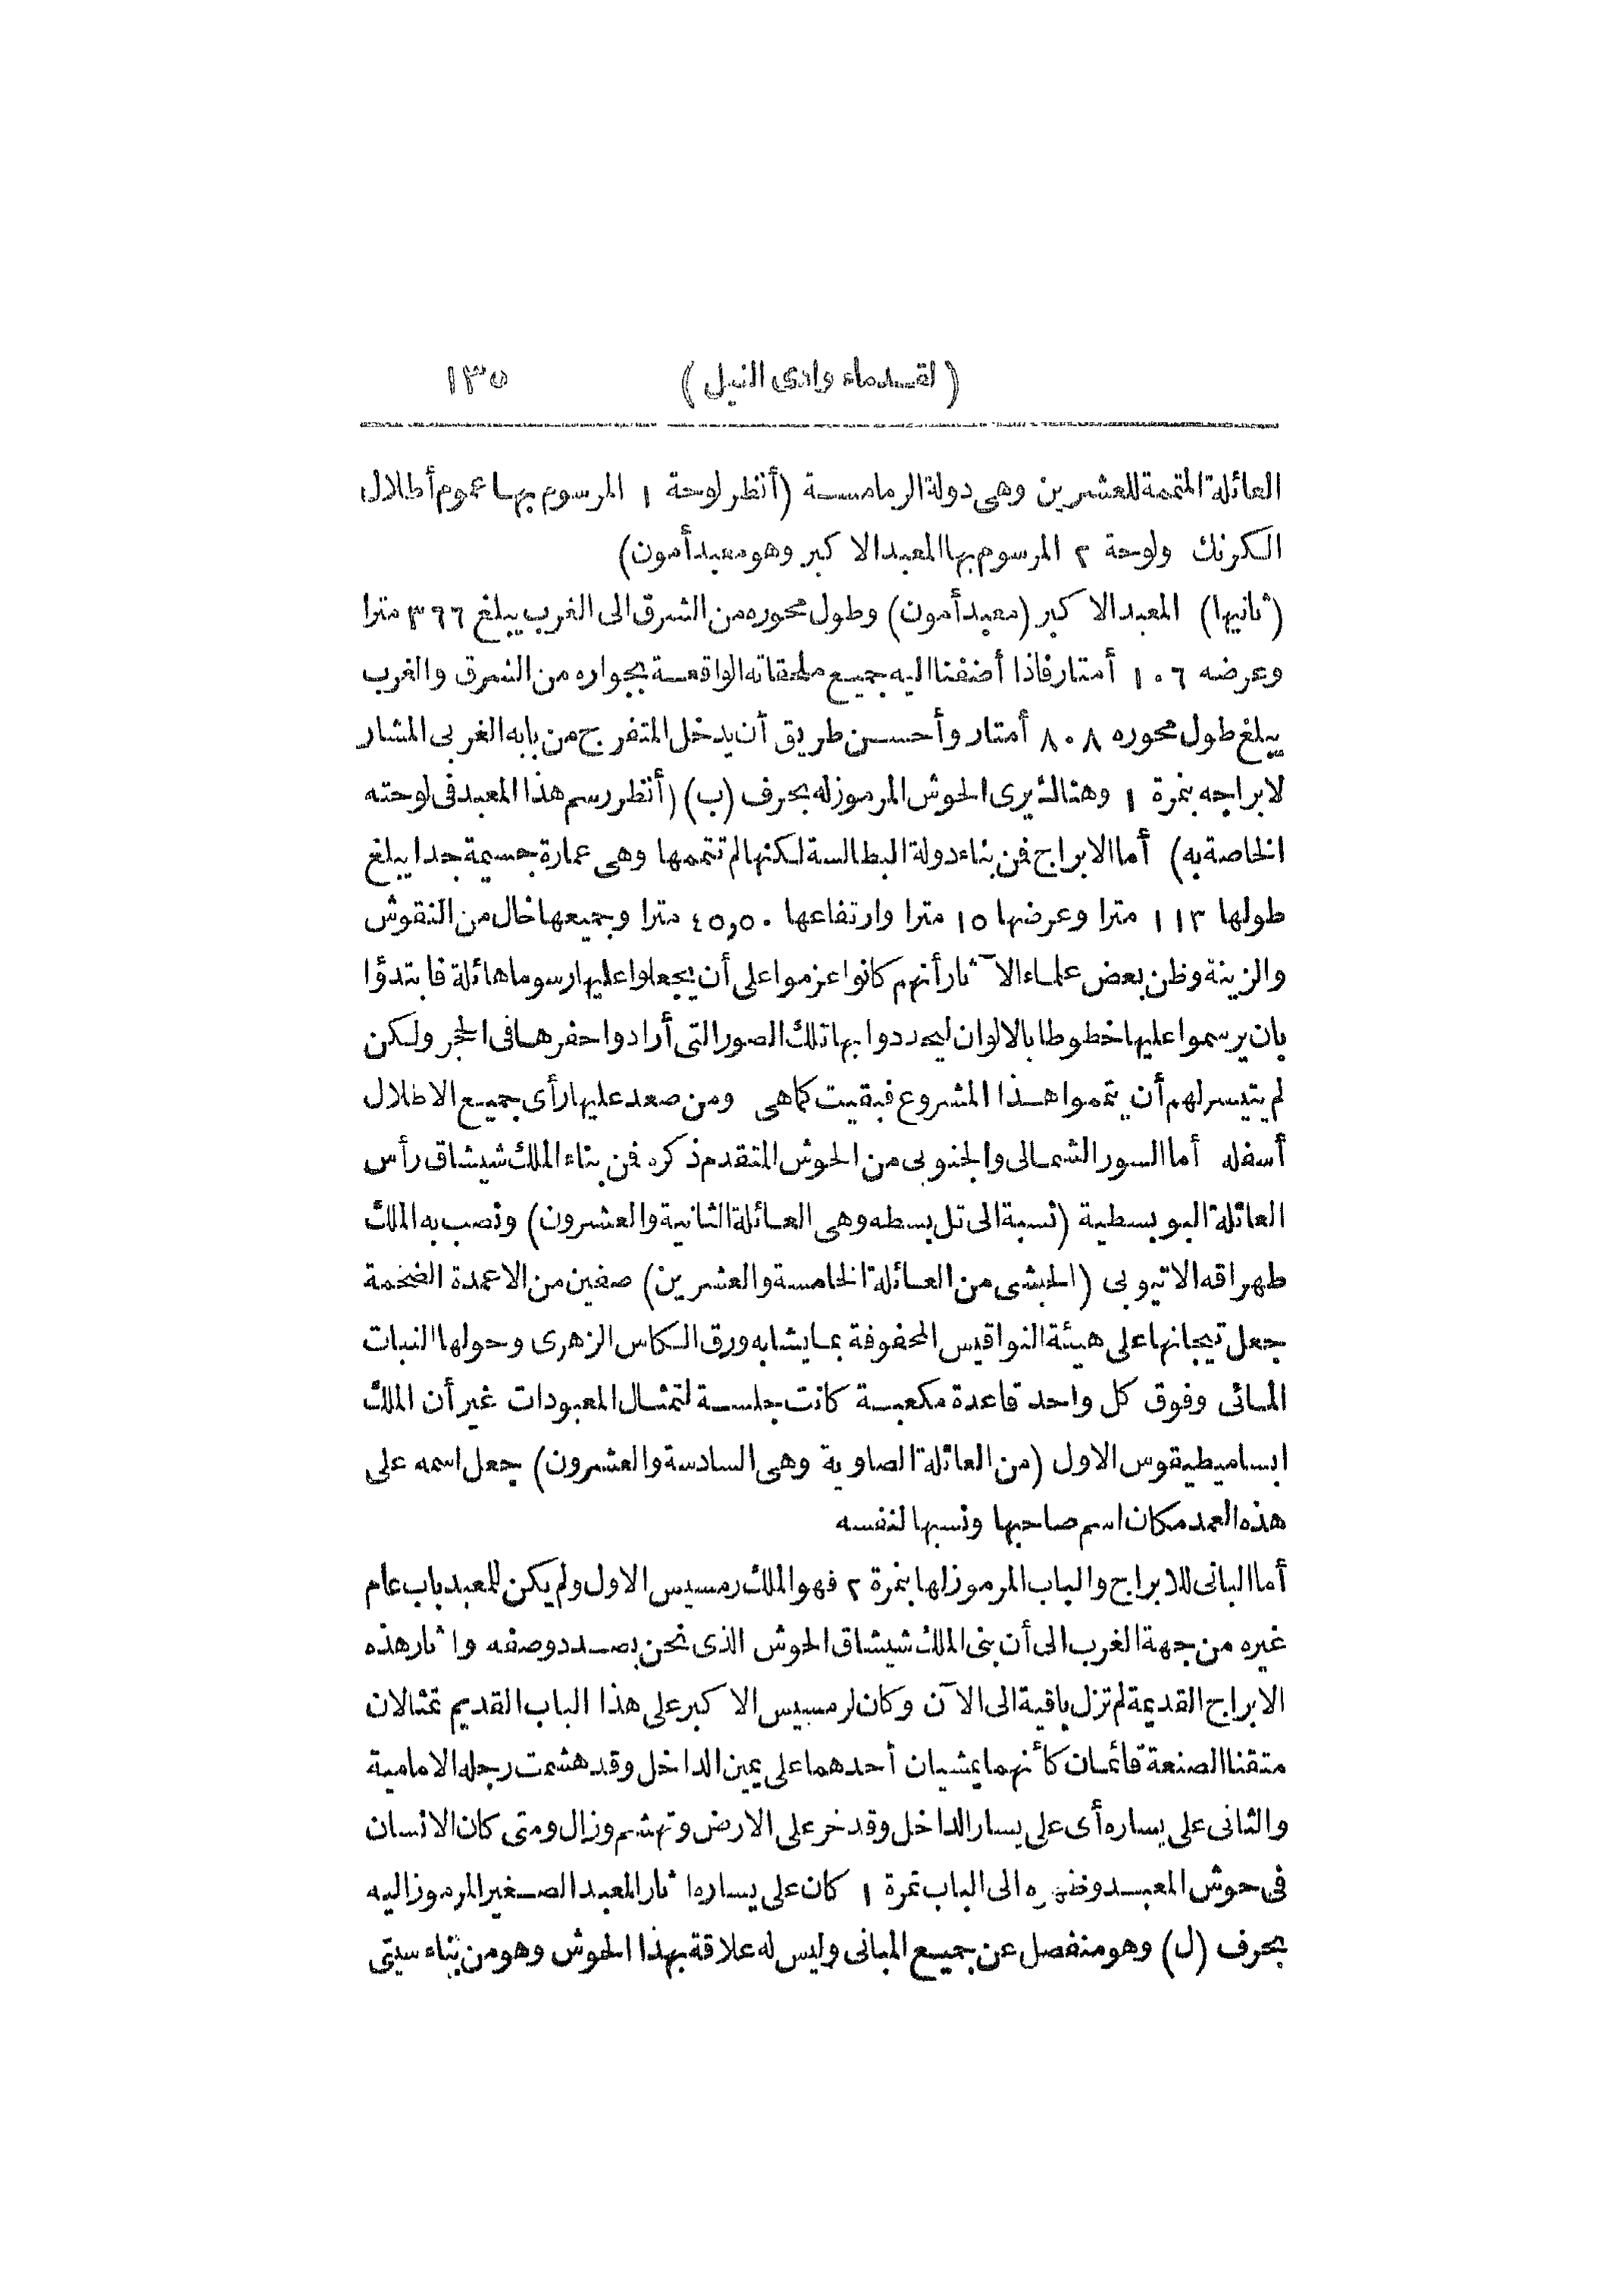 (لقدماء وادى النيل) ١٣٥
العائلة المتممة للعشرين وهى دولة الرمامسة (أنظر لوحة ١ المرسوم بها عموم أطلال
الكرنك ولوحة ٢ المرسوم بها المعبد الاكبر وهو معبد أمون)
(ثانيها) المعبد الاكبر (معبد أمون) وطول محوره من الشرق الى الغرب يبلغ ٣٦٦ مترا
وعرضه ١٠٦ أمتار فاذا أضفنا اليه جميع ملحقاته الواقعة بجواره من الشرق والغرب
يبلغ طول محوره ٨٠٨ أمتار وأحسن طريق أن يدخل المتفرج من بابه الغربى المشار
لابراجه بنمرة ١ وهنالك يرى الحوش المرموز له بحرف (ب) (أنظر رسم هذا المعبد فى لوحته
الخاصة به) أما الابراج فمن بناء دولة البطالسة لكنها لم تتممها وهى عمارة جسيمة جدا يبلغ
طولها ١١٣ مترا وعرضها ١٥ مترا وارتفاعها ٤٥,٥٠ مترا وجميعها خال من النقوش
والزينة وظن بعض علماء الآثار أنهم كانوا عزموا على أن يجعلوا عليها رسوما هائلة فابتدؤا
بان يرسموا عليها خطوطا بالالوان ليحددوا بها تلك الصور التى أرادوا حفرها فى الحجر ولكن
لم يتيسر لهم أن يتمموا هذا المشروع فبقيت كماهى ومن صعد عليها رأى جميع الاطلال
أسفله أما السور الشمالى والجنوبى من الحوش المتقدم ذكره فمن بناء الملك شيشاق رأس
العائلة البوبسطية (نسبة الى تل بسطه وهى العائلة الثانية والعشرون) ونصب به الملك
طهراقه الاتيوبى (الحبشى من العائلة الخامسة والعشرين) صفين من الاعمدة الضخمة
جعل تيجانها على هيئة النواقيس المحفوفة بمايشابه ورق الكاس الزهرى وحولها النبات
المائى وفوق كل واحد قاعدة مكعبة كانت جلسة لتمثال المعبودات غير أن الملك
ابساميطيقوس الاول (من العائلة الصاوية وهى السادسة والعشرون) جعل اسمه على
هذه العمد مكان اسم صاحبها ونسبها لنفسه
أما البانى للابراج والباب المرموز لها بنمرة ٢ فهو الملك رمسيس الاول ولم يكن للمعبد باب عام
غيره من جهة الغرب الى أن بنى الملك شيشاق الحوش الذى نحن بصدد وصفه واثار هذه
الابراج القديمة لم تزل باقية الى الآن وكان لرمسيس الاكبر على هذا الباب القديم تمثالان
متقنا الصنعة قائمان كأنهما يمشيان أحدهما على يمين الداخل وقد هشمت رجله الامامية
والثانى على يساره أى على يسار الداخل وقد خر على الارض وتهشم وزال ومتى كان الانسان
فى حوش المعبد وظهره الى الباب نمرة ١ كان على يساره اثار المعبد الصغير المرموز اليه
بحرف (ل) وهو منفصل عن جميع المبانى وليس له علاقة بهذا الحوش وهو من بناء سيتى